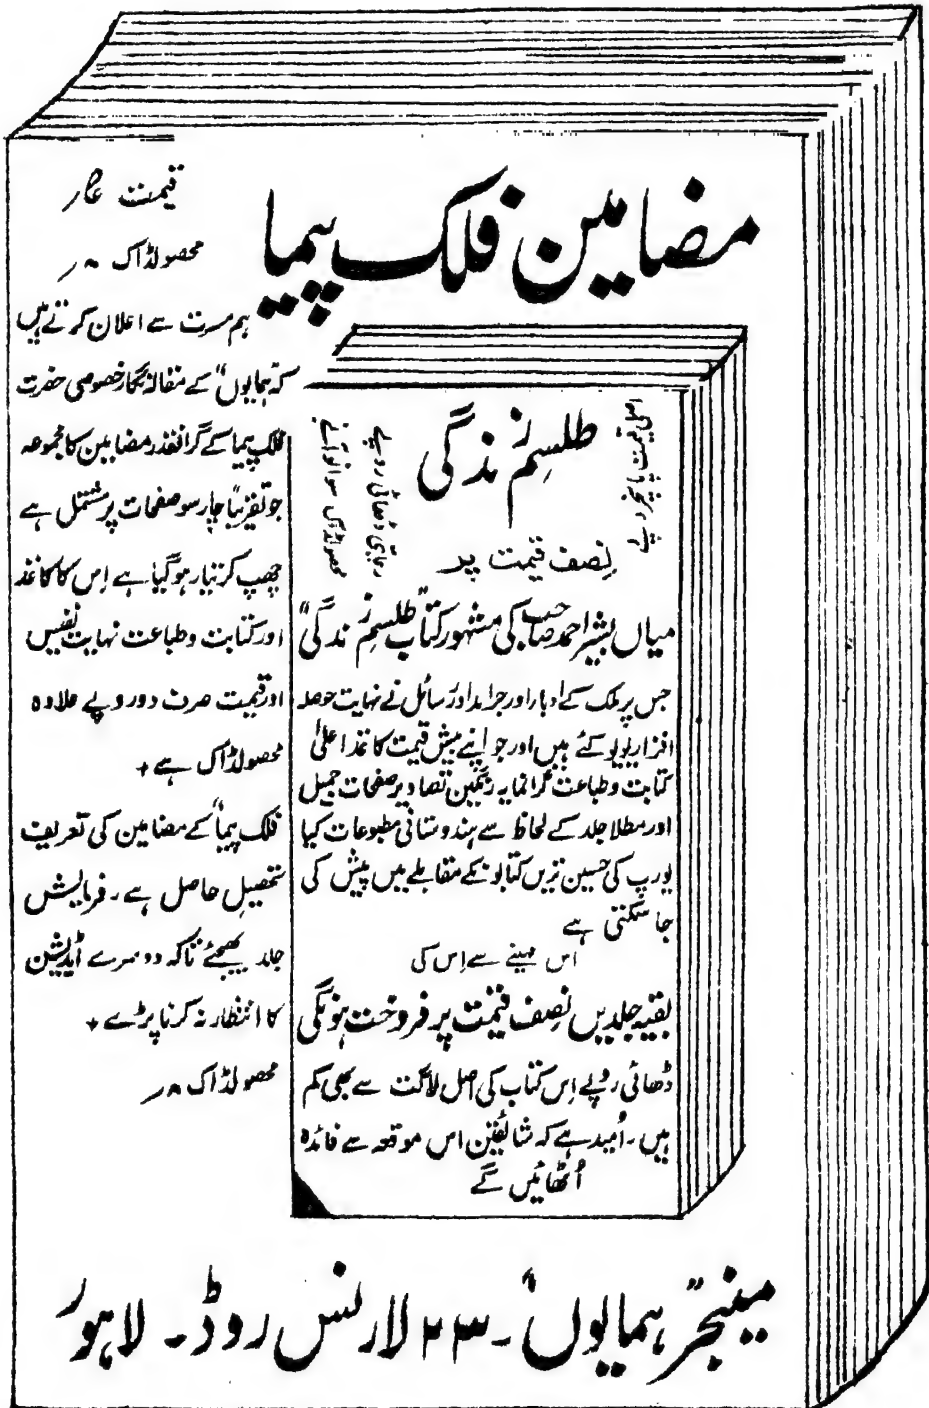 مضامین فلک پیما
قیمت عہ/
محصولڈاک ۸/
ہم مسرت سے اعلان کرتے ہیں
کہ "ہمایوں" کے مقالہ نگار خصوصی حضرت
فلک پیما کے گرانقدر مضامین کا مجموعہ
جو تقریباً چار سو صفحات پر مشتمل ہے
چھپ کر تیار ہو گیا ہے اِس کا کاغذ
اور کتابت و طباعت نہایت نفیس
اور قیمت صرف دو روپے علاوہ
محصولڈاک ہے +
فلک پیما کے مضامین کی تعریف
تحصیلِ حاصل ہے۔ فرمائیش
جلد بھیجئے تاکہ دوسرے ایڈیشن
کا انتظار نہ کرنا پڑے +
محصولڈاک ۸/
طلسمِ زندگی
رعایتی ڈھائی روپے
محصولڈاک سوا نو آنے
نِصف قیمت پر
میاں بشیر احمد صاحب کی مشہور کتاب "طلسمِ زندگی"
جس پر ملک کے ادبا اور جرائد اور رسائل نے نہایت حوصلہ
افزا ریویو کئے ہیں اور جو اپنے بیش قیمت کاغذ اعلیٰ
کتابت و طباعت گرانمایہ رنگین تصاویر صفحات جمیل
اور مطلا جلد کے لحاظ سے ہندوستانی مطبوعات کیا
یورپ کی حسین تریں کتابونکے مقابلے میں پیش کی
جا سکتی ہے
اس مہینے سے اِس کی
بقیہ جلدیں نِصف قیمت پر فروخت ہونگی
ڈھائی روپے اِس کتاب کی اصل لاگت سے بھی کم
ہیں۔ اُمید ہے کہ شائقین اس موقعہ سے فائدہ
اُٹھائیں گے
مینجر "ہمایوں"۔ ۲۳ لارنس روڈ۔ لاہور